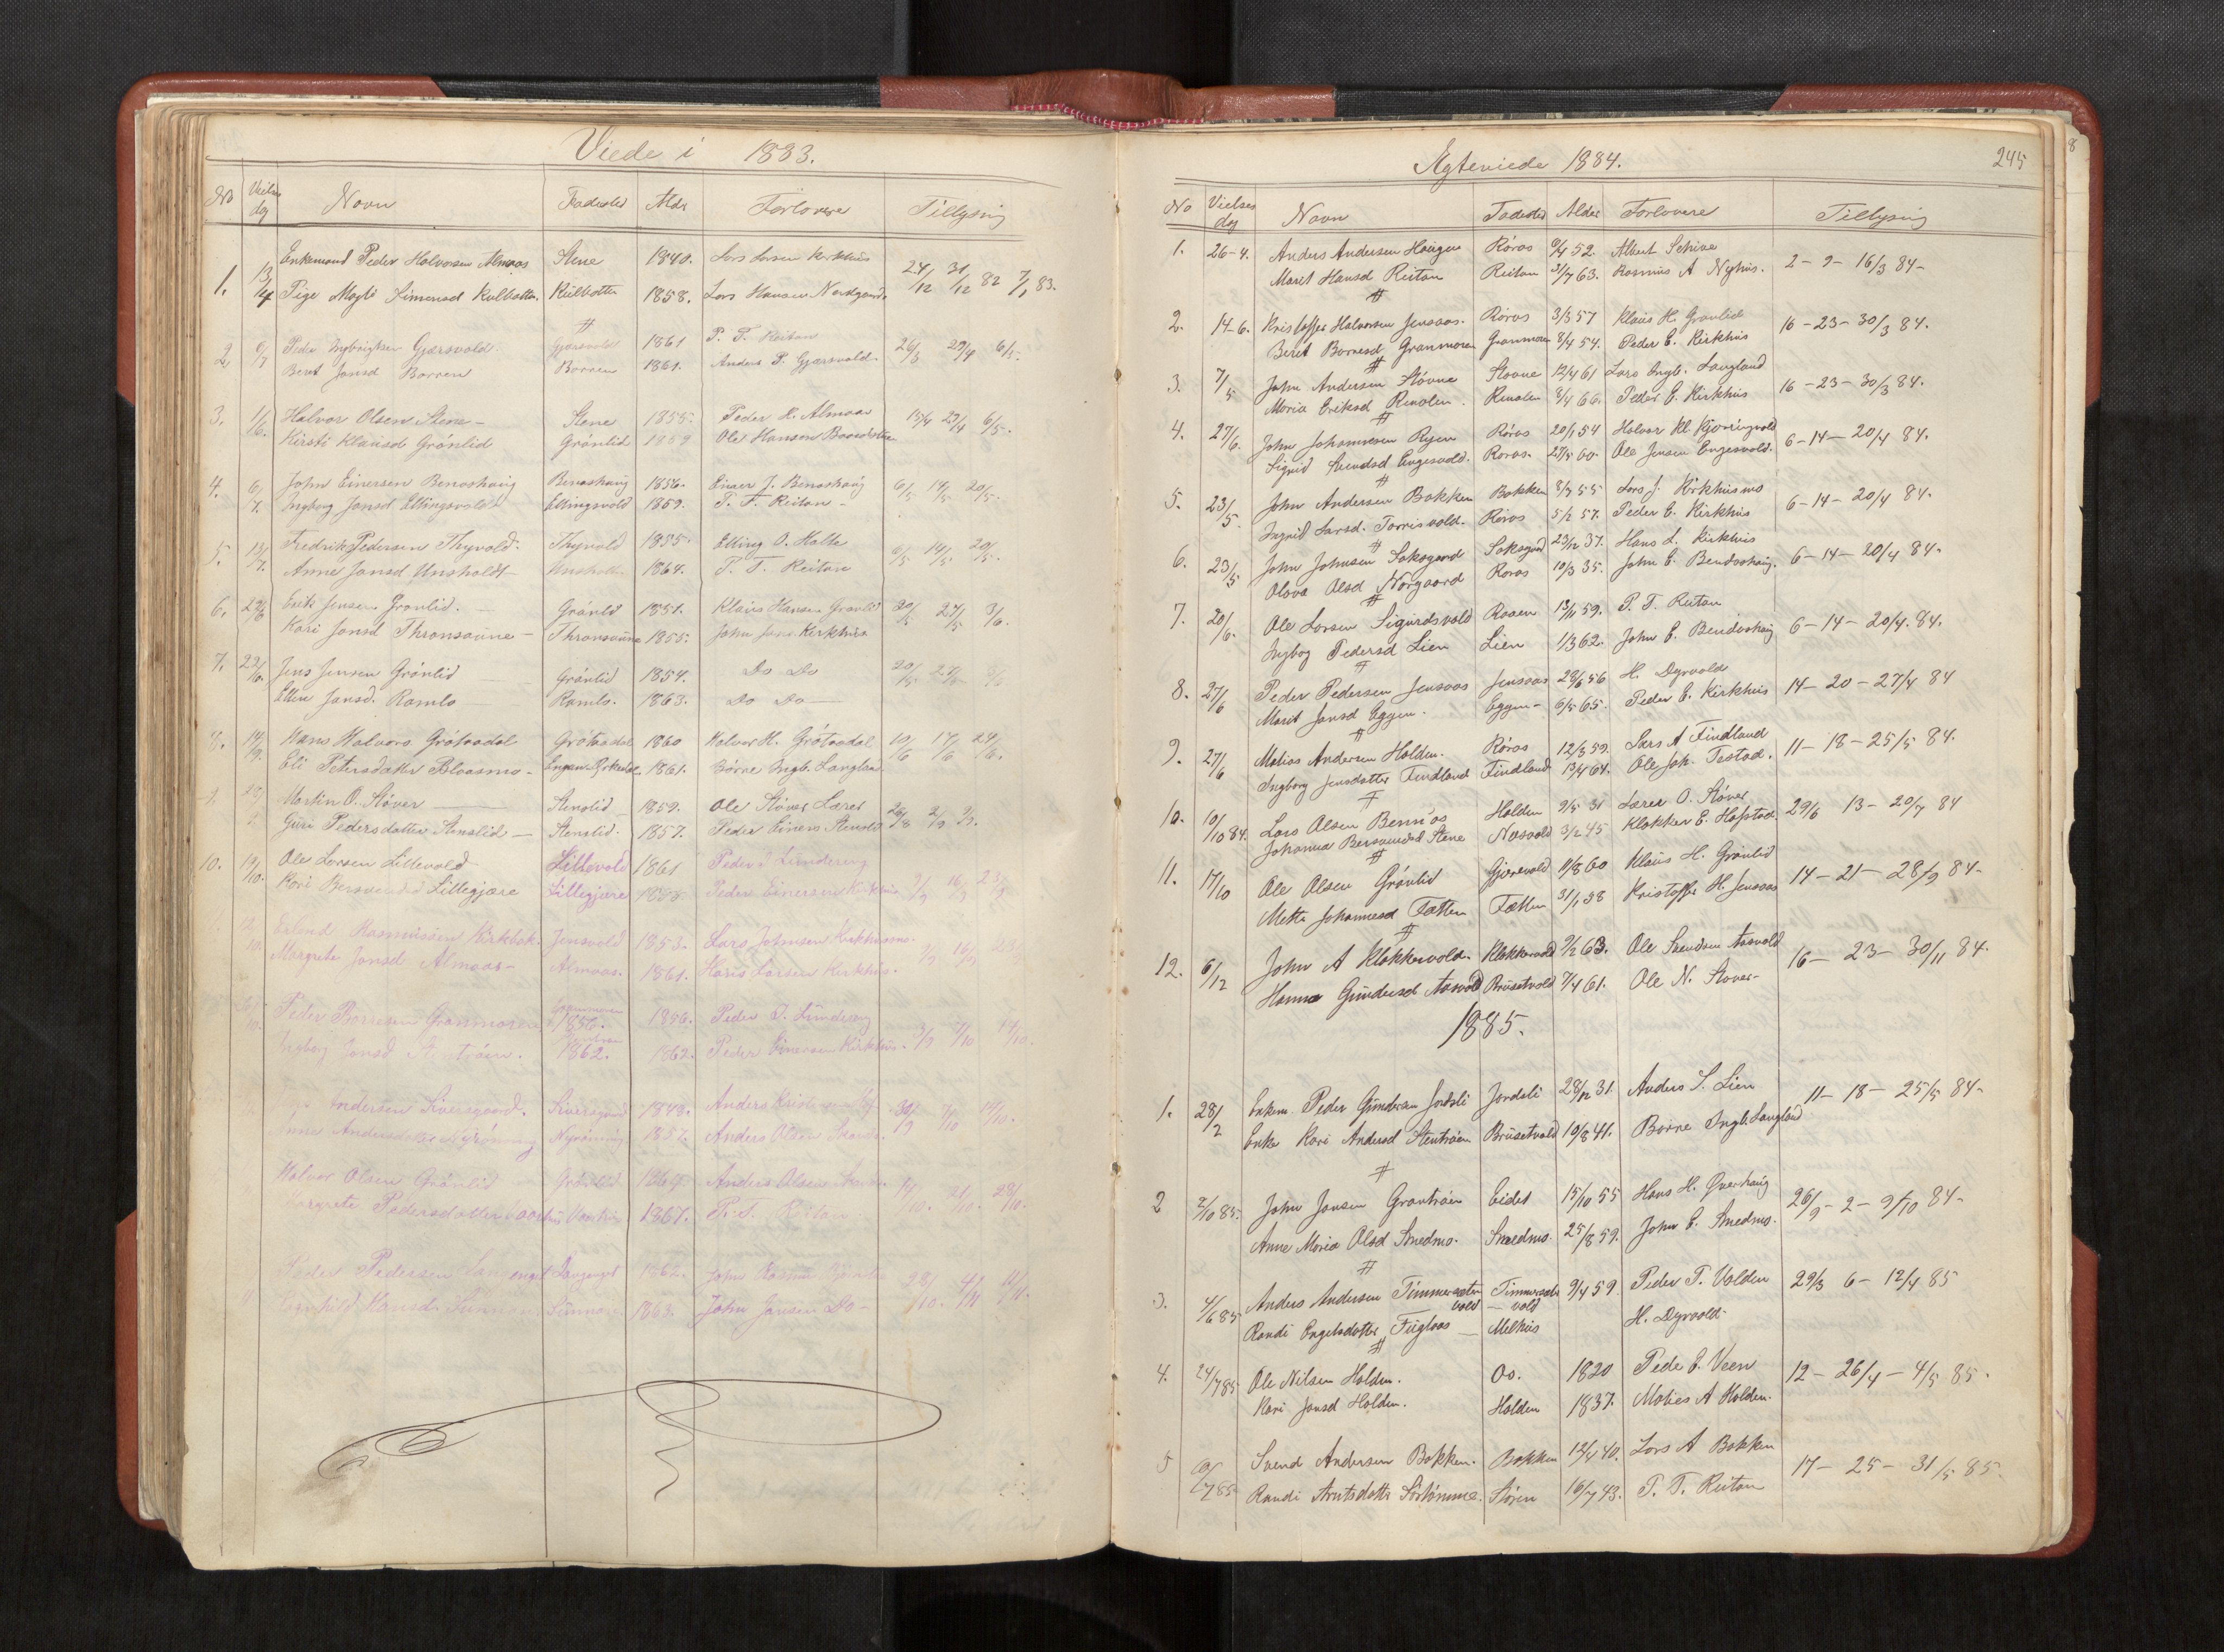 Viede i 1883.
No Vielses dag Navn Fødested Alder Forlovere Tillysing
1. 13/4 Enkemand Peder Halvorsen Almaas Stene 1840. Lars Larsen Kirkhus 24/12 31/12 82 7/1 83.
Pige Magli Simensd Kulbotten. Kulbotten 1858. Lars Hansen Nordgaard
2 6/7 Peder Ingbrigtsen Gjærsvold Gjærsvold 1861 P. T. Reitan 26/3 29/4 6/5.
Berit Jonsd Borren Borren 1861. Anders P. Gjærsvold.
3. 1/6. Halvor Olsen Stene - Stene 1855. Peder H. Almaas 15/4 29/4 6/5.
Kirsti Klausd Grønlid Grønlid 1859 Ole Hansen
4. 6/7. John Einersen Benoshaug Benoshaug 1856. Einer J. Benoshaug 6/5 14/5 20/5.
Ingborg Jonsd Ellingsvold Ellingsvold 1859. T. T. Reitan -
5. 13/7. Fredrik Pedersen Thyvold. Thyvold 1855. Elling O. Holte 6/5 14/5 20/5.
Anne Jonsd Unsholdt Unsholt 1864. T. T. Reitan
6. 29/6 Erik Jensen Grønlid. Grønlid 1851. Klaus Hansen Grønlid 20/5 27/5 3/6.
Kari Jonsd Thronsaune - Thronsaune 1855. John Jons Kirkhus
7. 29/6. Jens Jensen Grønlid Grønlid 1854. Do Do 20/5 27/5 3/6
Ellen Jonsd. Ramlo Ramlo. 1863. Do Do
8. 14/9. Hans Halvors Grøtaadal Grøtaadal 1860 Halvor H. Grøtaadal 10/6 17/6 24/6.
Eli Petersdatter Bloasmo - 1861. Børre Ingb. Langland
Martin O. Støver Stenslid 1859. Ole Støver Lærer 26/8 2/9 9/9.
Guri Pedersdatter Stenslid - Stenslid. 1857. Peder Einers Stenslid
10. 19/10. Ole Larsen Lillevold Lillevold 1861 Peder J Lundereng
Kari Bersvendsd Lillegjære Lillegjære 1858 Peder Einersen Kirkhus 9/9 16/9 23/9
Erlend Rasmussen Kirkbak. Jensvold 1853. Lars Johnsen Kirkhusmo.
Margrete Jonsd Almaas - Almaas. 1861. Hans Larsen Kirkhus.
Peder Borresen Granmoren 1856. 1856. Peder J. Lundereng
Ingborg Jonsd 1862. 1862. Peder Einersen Kirkhus. 3/9 7/10 14/10.
Andersen Siversgaard. Siversgaard 1843. Anders 30/9 7/10 14/10.
Anne Andersdatter Nyrønning Nyrønning 1857. Anders Olsen
Halvor Olsen Grønlid Grønlid 1864 Anders Olsen 14/10. 21/10. 28/10.
Margrete Pedersdatter 1867. P. T. Reitan
Peder Pedersen Langenget Langenget 1862. John Rasmus 28/10. 4/11 11/11.
Hansd 1863. John Jonsen Do -
Ægteviede 1884. 245
No Vielses dag Navn Fødested Alder Forlovere Tillysing
1. 26-4. Anders Andersen Haugen Røros 9/4 52. Albert Schive
Marit Hansd Reitan Reitan 31/7 63. Rasmus A Nyhus. 2 - 9 - 16/3 84 -
2. 14-6. Kristoffer Halvorsen Jensaas. Røros 3/3 57 Klaus H. Grønlid 16 - 23 - 30/3 84.
Beret Borresd Granmoren Granmoren 8/4 54. Peder E. Kirkhus
3. 7/5 John Andersen Støvne Stovne 12/4 61 Lars Ingb. Langland
Maria Eriksd Renolen. Renolen 8/4 66. Peder E. Kirkhus 16 - 23 - 30/3 84.
4. 27/6. John Johannesen Ryen Røros 20/1 54 Halvor Kl. Kjørringvold
Sigrid Svendsd Engesvold. Roros. 27/5 60. Ole Jensen Engesvold. 6 - 14 - 20/4 84.
5. 23/5. John Andersen Bakken Bakken 8/7 55 Lars J. Kirkhusmo
Ingrid Larsd. Torrisvold. Røros 5/2 57. Peder E. Kirkhus 6 - 14 - 20/4 84.
6. 23/5 John Johnsen Soksgard Soksgard 23/12 37. Hans L. Kirkhus
Olova Olsd Norgaard Roros 10/3 35. John E. Bendoshaug. 6 - 14 - 20/4 84.
7. 20/6. Ole Larsen Sigurdsvold Raaen 13/11 59. P. T. Reitan
Ingbog Pedersd Lien Lien 1/3 62. John E. Bendoshaug 6 - 14 - 20/4. 84.
8. 27/6 Peder Pedersen Jensaas Jensaas 29/6 56 H. Dyrvold
Marit Jonsd Eggen. Eggen - 6/5 65. Peder E. Kirkhus 14 - 20 - 27/4 84
9. 27/6 Matias Andersen Holden. Røros 12/3 59. Lars A Findland
Ingborg Jensdatter Findland Findland 13/4 64. Ole Joh. Testad. 11 - 18 - 25/5 84.
10. 10/10 84. Lars Olsen Bennøs Holden 9/5 31 Lærer O. Støver
Johanna Bersvendsd Stene Næsvold 3/2 45 Klokker E. Hofstad. 29/6 13 - 20/7 84
11. 17/10 Ole Olsen Grønlid Gjærsvold 11/8 60 Klaus H. Grønlid
Mette Johannesd Tætten Tætten 31/1 58 Kristoffer H. Jensaas 14 - 21 - 28/9 84 -
12. 6/12 John A Klokkervold. Klokkervold 9/2 63. Ole Svendsen Aasvold
Hanna Gundersd Aasvold Brusetvold 7/4 61. Ole N. Stover - 16 - 23 - 30/11 84.
1885.
1. 28/2 Enkem. Peder Gundersen Jordsli Jordsli 28/12 31. Anders S. Lien 11 - 18 - 25/5 84 -
Enke Kari Andersd Stentrøen Brusetvold 10/8 41. Borre Ingb. Langland
2 2/10 85. John Jonsen Grantrøen Eidet 15/10 55 Hans H. Qverhaug
Anne Maria Olsd Smedmo. Smedmo 25/8 59. John E. Smedmo. 26/9 - 2 - 9/10 84 -
3. 4/6 85 Anders Andersen Timmersætervold Timmersæter - vold 9/4 59. Peder T. Volden 29/3 6 - 12/4 85
Randi Engelsdatter Fuglaas - Melhus H. Dyrvold
4. 24/7 85 Ole Nilsen Holden. Os. 1820 Peder E. Veen
Kari Jonsd Holden. Holden 1837. Matias A Holden. 12 - 26/4 - 4/5 85.
5 Svend Andersen Bakken. Bakken 12/4 40. Lars A Bakken
Randi Arntsdatter Sørtømme. Støren 16/7 43. P. T. Reitan 17 - 25 - 31/5 85.